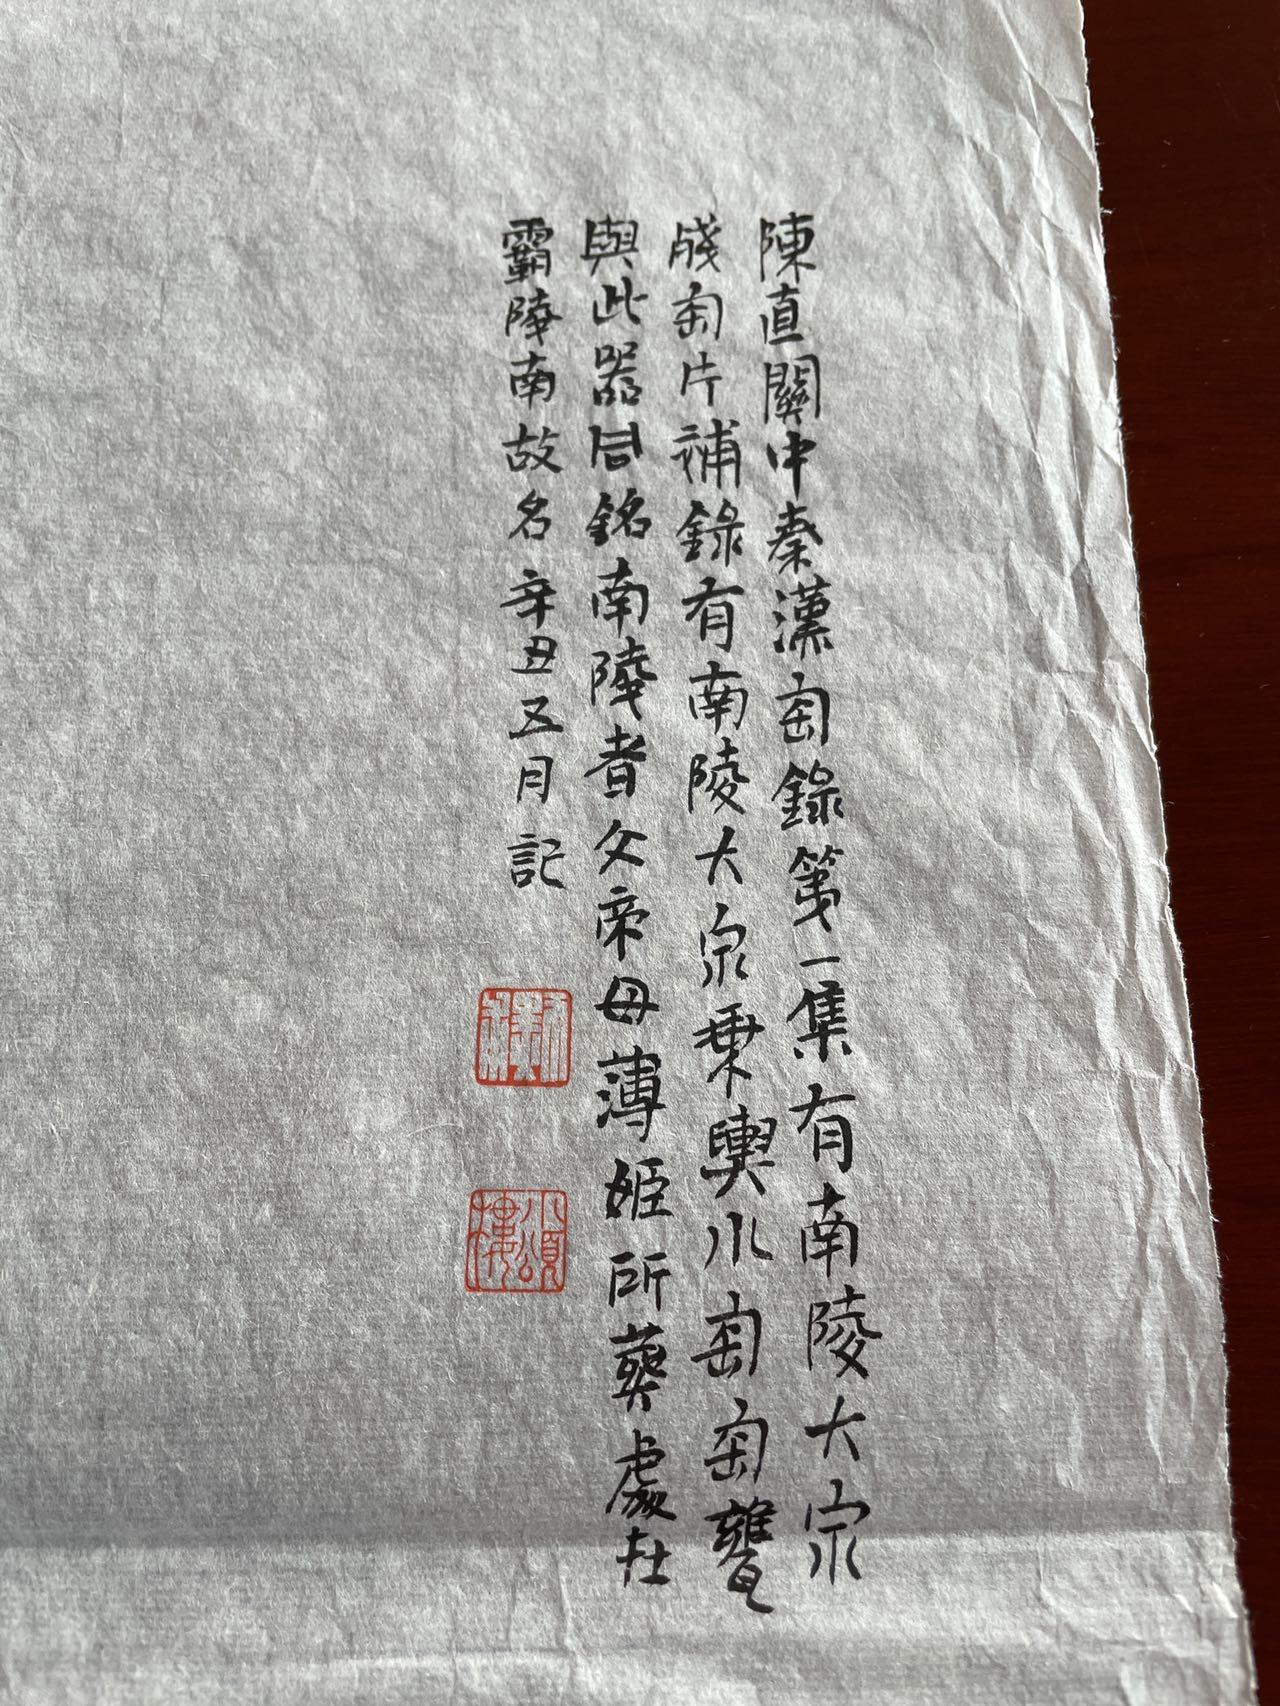 陳直關中秦漢匋錄第一集有南陵大泉
殘匋片補錄有南陵大泉乘輿水匋匋罋
與此器同銘南陵者文帝母薄姬所葬處在
霸陵南故名辛丑五月記
八頌樓